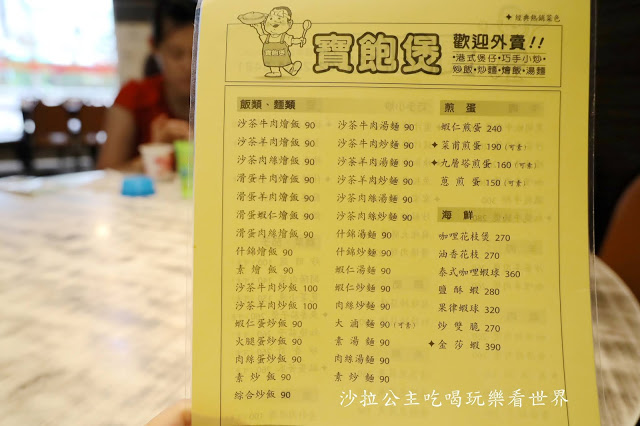 ✦經典熱鍋菜色
寶飽煲
歡迎外賣!!
•港式煲仔•巧手小炒•
炒飯•炒麵•燴飯•湯麵
飯類、麵類
沙茶牛肉燴飯 90
沙茶羊肉燴飯 90
沙茶肉絲燴飯 90
滑蛋牛肉燴飯 90
滑蛋羊肉燴飯 90
滑蛋蝦仁燴飯 90
滑蛋肉絲燴飯 90
什錦燴飯 90
素燴飯 90
沙茶牛肉炒飯 100
沙茶羊肉炒飯 100
蝦仁蛋炒飯 90
火腿蛋炒飯 90
肉絲蛋炒飯 90
素炒飯 90
綜合炒飯 90
沙茶牛肉湯麵 90
沙茶牛肉炒麵 90
沙茶羊肉湯麵 90
沙茶羊肉炒麵 90
沙茶肉絲湯麵 90
沙茶肉絲炒麵 90
什錦湯麵 90
什錦炒麵 90
蝦仁湯麵 90
蝦仁炒麵 90
肉絲炒麵 90
大滷麵 90(可素)
素湯麵 90
肉絲湯麵 90
素炒麵 90
煎蛋
蝦仁煎蛋 240
✦菜甫煎蛋 190(可素)
✦九層塔煎蛋 160(可素)
蔥煎蛋 150(可素)
海鮮
咖哩花枝煲 270
油香花枝 270
泰式咖哩蝦球 360
鹽酥蝦 280
果律蝦球 320
炒雙脆 270
✦金莎蝦 390
沙拉公主吃喝玩樂看世界